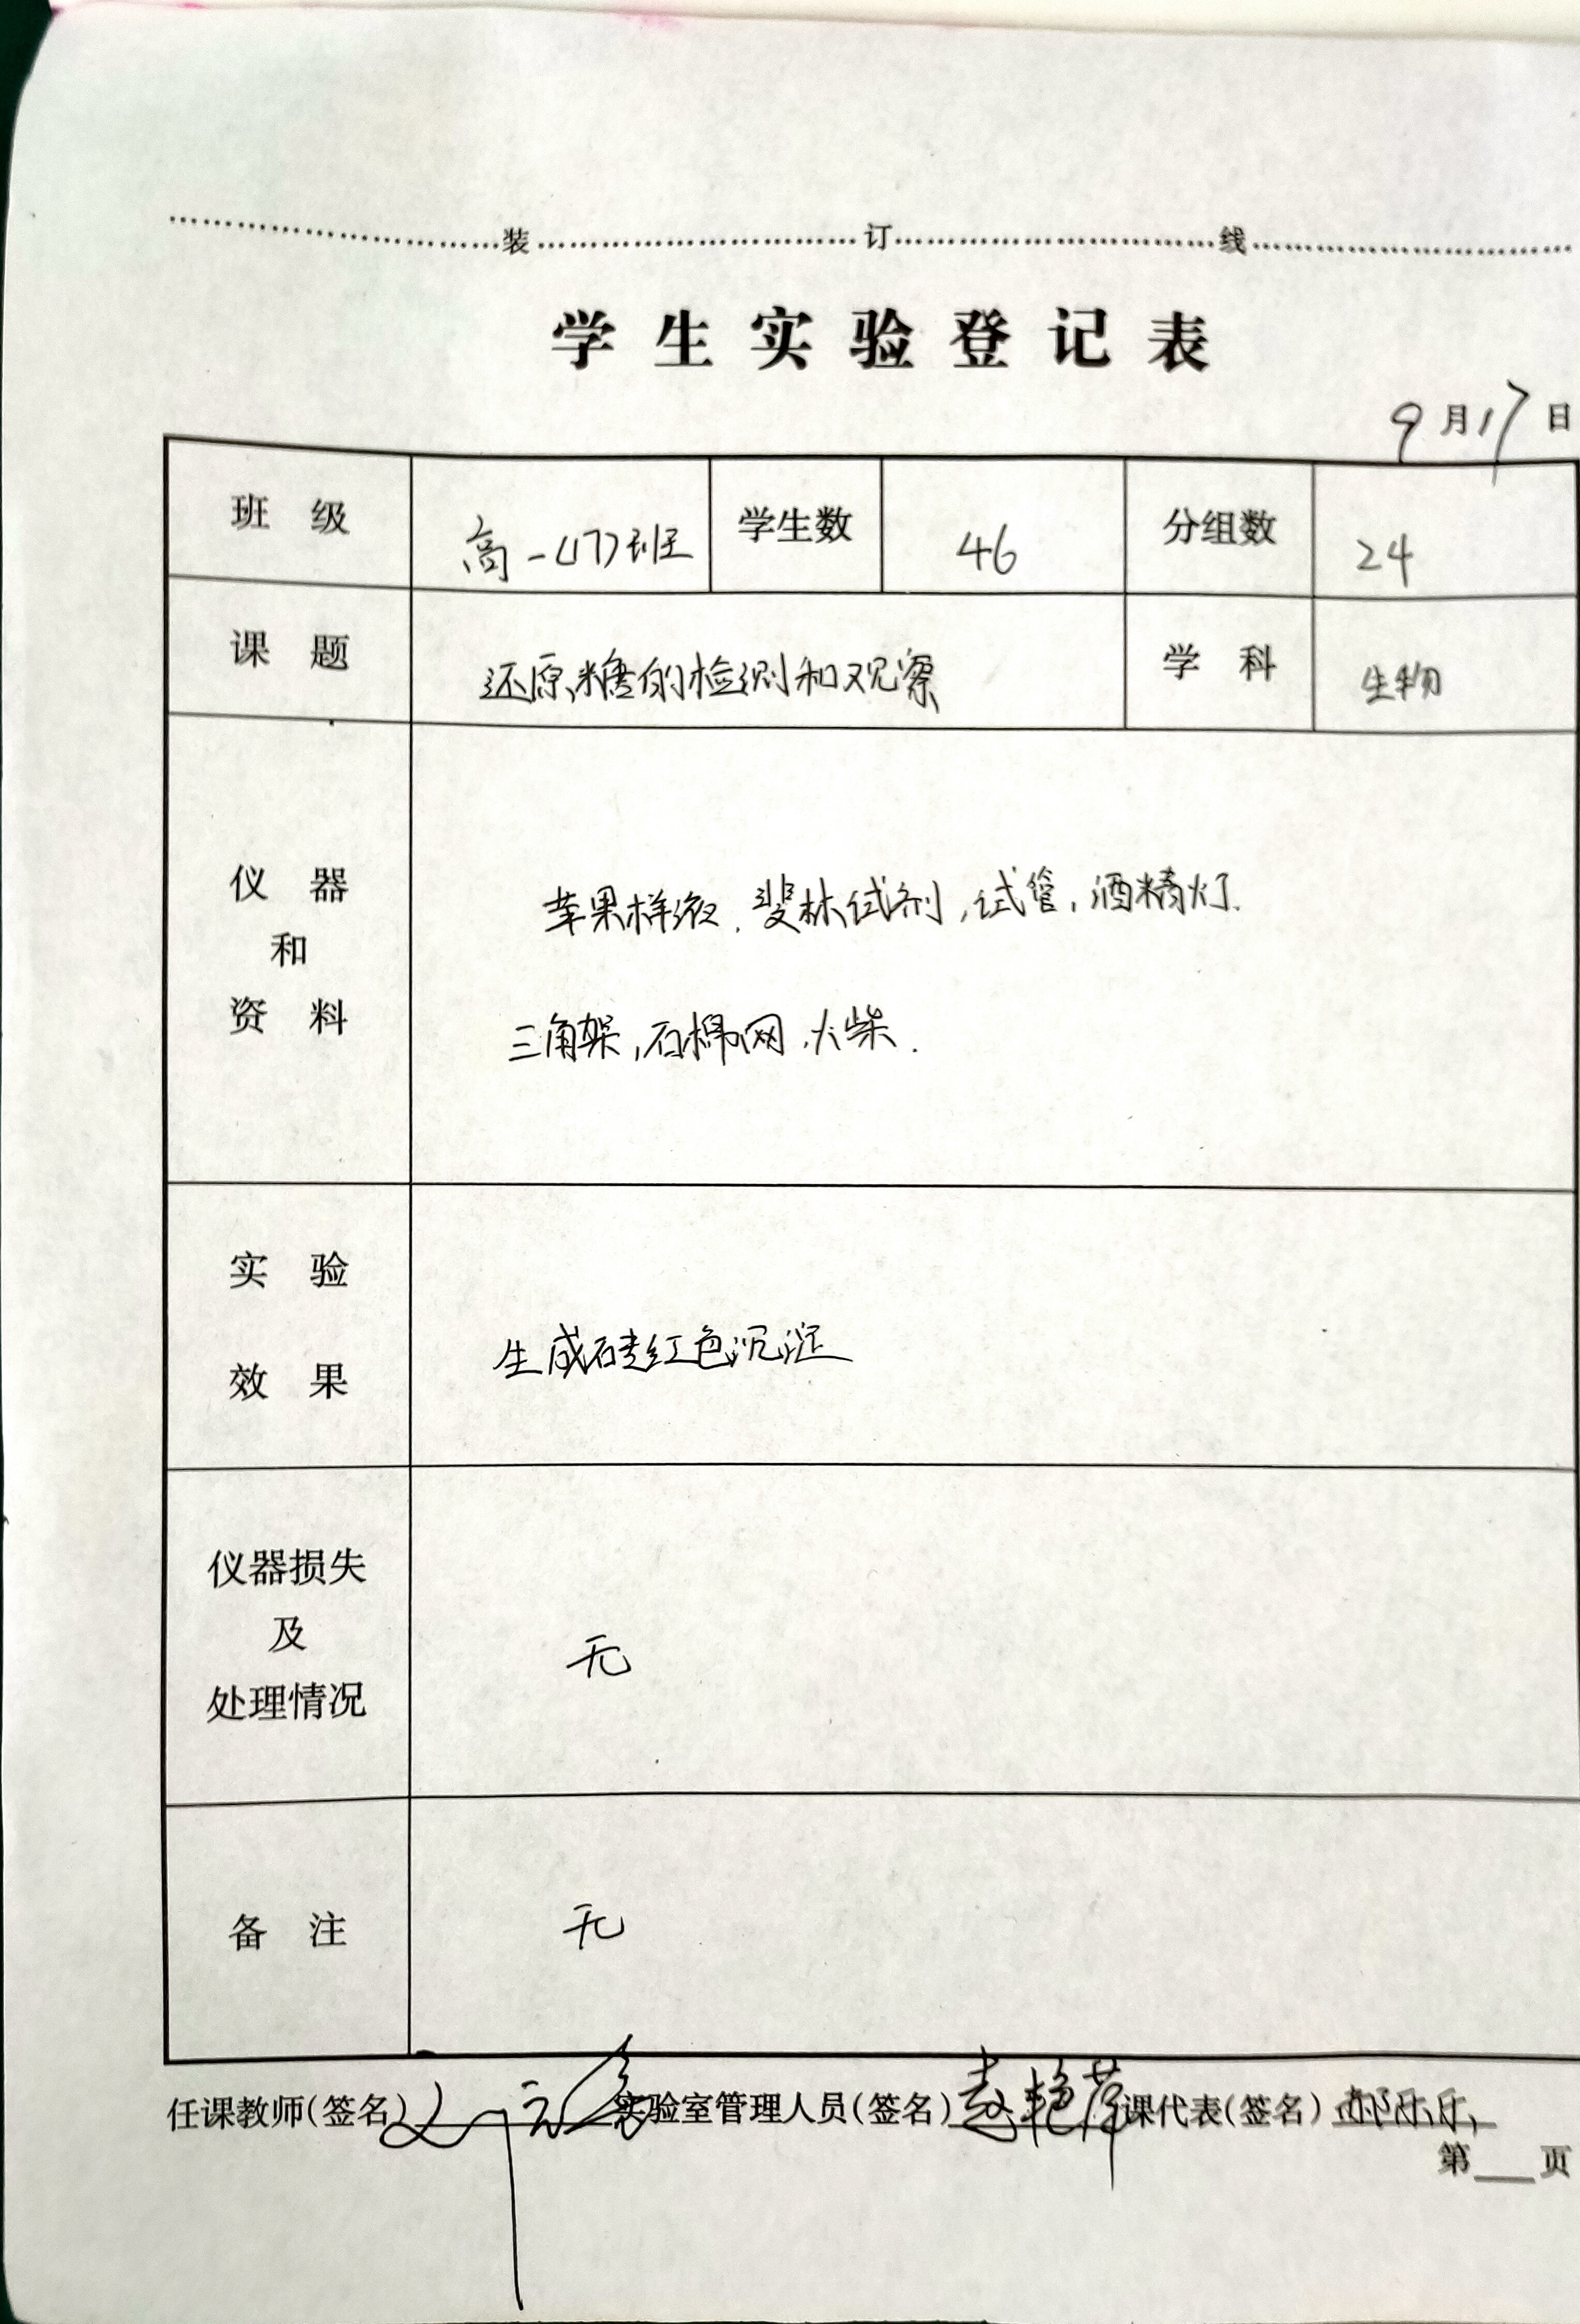 装 订 线
学生实验登记表
9月17日
班级 高一(17)班 学生数 46 分组数 24
课题 还原糖的检测和观察 学科 生物
仪器
和
资料
苹果样液、斐林试剂,试管,酒精灯.
三角架,石棉网、火柴.
实验
效果
生成砖红色沉淀
仪器损失
及
处理情况
无
备注 无
任课教师(签名) 实验室管理人员(签名)赵艳萍 课代表(签名)
第 页